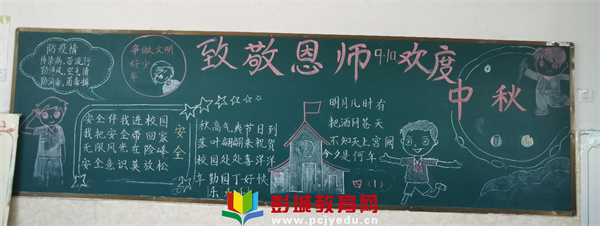 防疫情
传染病,莫流行
勤通风,空气清
勤消毒,菌毒销
争做文明
好少
年
致敬恩师9.10欢度
中秋
安全伴我进校园
我把安全带回家
无限风光在险峰
安全意识莫放松
安全
秋高气爽节日到
落叶翩翩来祝贺
校园处处喜洋洋
辛勤园丁好快
乐
明月几时有
把酒问苍天
不知天上宫阙
今夕是何年
四(1)
彭城教育网
www.pcjyedu.cn